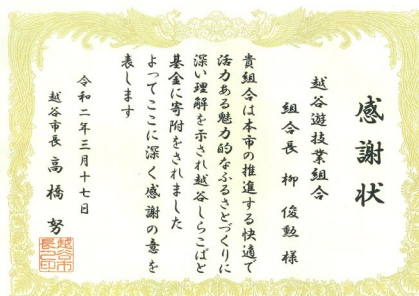 感謝状
越谷遊技業組合
組合長 柳 俊勲 様
貴組合は本市の推進する快適で
活力ある魅力的なふるさとづくりに
深い理解を示され越谷しらこばと
基金に寄附をされました
よってここに深く感謝の意を
表します
令和二年三月十七日
越谷市長 高橋 努
越谷市
長之印